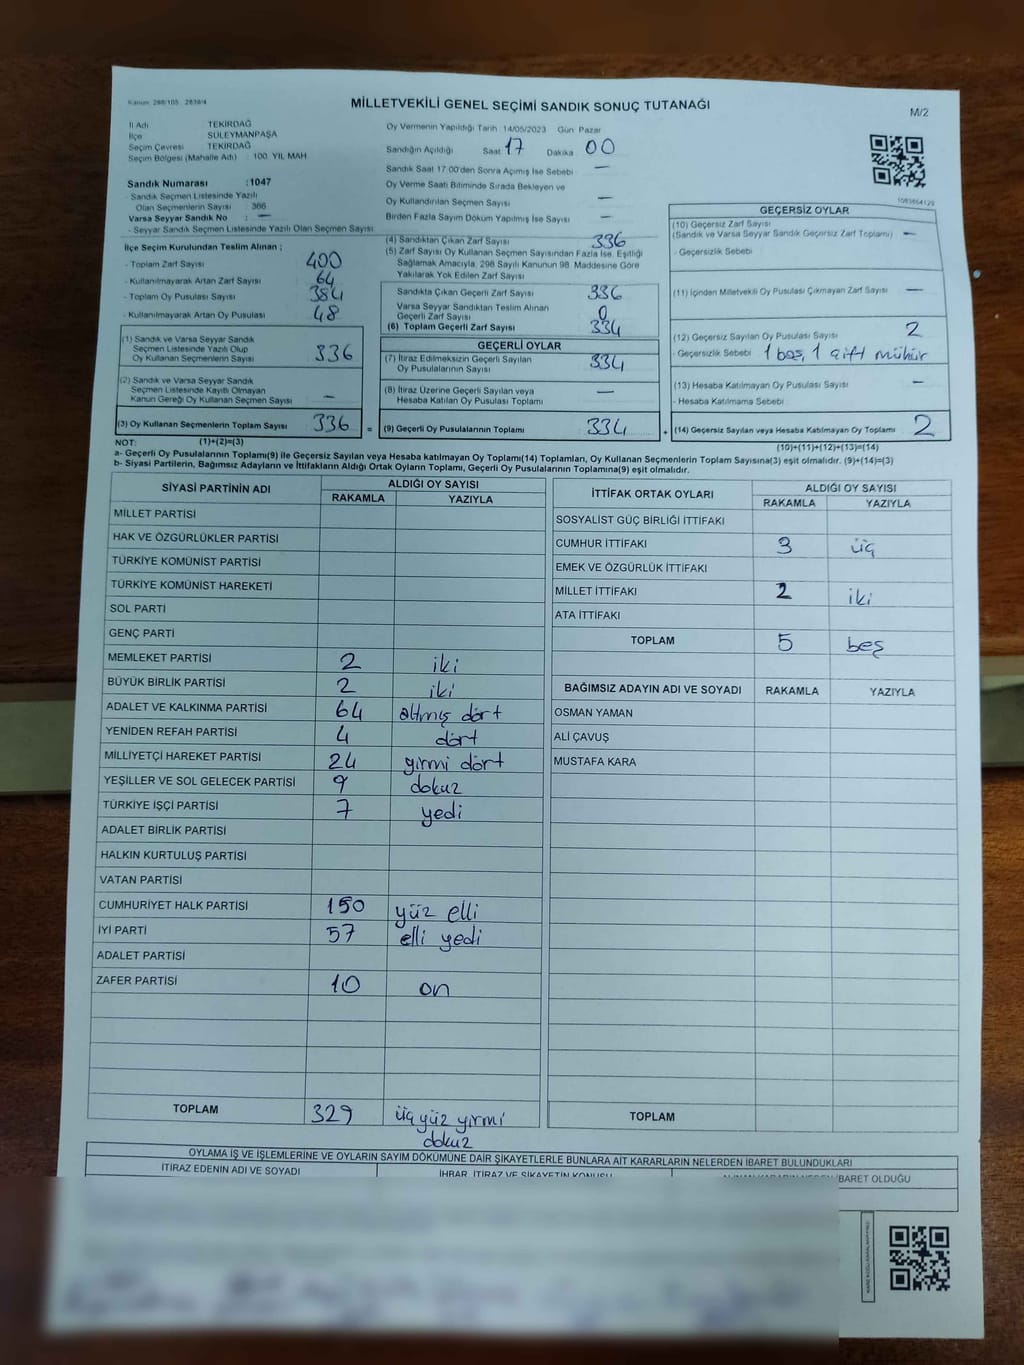 Kanun: 298/105 : 2839/4
MİLLETVEKİLİ GENEL SEÇİMİ SANDIK SONUÇ TUTANAĞI
M/2
İl Adı TEKİRDAĞ
İlçe SÜLEYMANPAŞA
Seçim Çevresi TEKİRDAĞ
Seçim Bölgesi (Mahalle Adı) : 100. YIL MAH
Oy Vermenin Yapıldığı Tarih : 14/05/2023 Gün: Pazar
Sandığın Açıldığı Saat 17 Dakika 00
Sandık Saat 17:00'den Sonra Açılmış İse Sebebi —
Oy Verme Saati Bitiminde Sırada Bekleyen ve
Oy Kullandırılan Seçmen Sayısı —
Birden Fazla Sayım Döküm Yapılmış İse Sayısı —
Sandık Numarası :1047
- Sandık Seçmen Listesinde Yazılı
Olan Seçmenlerin Sayısı : 366
Varsa Seyyar Sandık No : —
- Seyyar Sandık Seçmen Listesinde Yazılı Olan Seçmen Sayısı
İlçe Seçim Kurulundan Teslim Alınan ;
- Toplam Zarf Sayısı 400
- Kullanılmayarak Artan Zarf Sayısı 64
- Toplam Oy Pusulası Sayısı 384
- Kullanılmayarak Artan Oy Pusulası 48
(1) Sandık ve Varsa Seyyar Sandık
Seçmen Listesinde Yazılı Olup
Oy Kullanan Seçmenlerin Sayısı 336
(2) Sandık ve Varsa Seyyar Sandık
Seçmen Listesinde Kayıtlı Olmayan
Kanun Gereği Oy Kullanan Seçmen Sayısı —
(3) Oy Kullanan Seçmenlerin Toplam Sayısı 336 =
(4) Sandıktan Çıkan Zarf Sayısı 336
(5) Zarf Sayısı Oy Kullanan Seçmen Sayısından Fazla İse, Eşitliği
Sağlamak Amacıyla, 298 Sayılı Kanunun 98. Maddesine Göre
Yakılarak Yok Edilen Zarf Sayısı
Sandıkta Çıkan Geçerli Zarf Sayısı 336
Varsa Seyyar Sandıktan Teslim Alınan
Geçerli Zarf Sayısı 0
(6) Toplam Geçerli Zarf Sayısı 334
GEÇERLİ OYLAR
(7) İtiraz Edilmeksizin Geçerli Sayılan
Oy Pusulalarının Sayısı 334
(8) İtiraz Üzerine Geçerli Sayılan veya
Hesaba Katılan Oy Pusulası Toplamı —
(9) Geçerli Oy Pusulalarının Toplamı 334 +
1083654129
GEÇERSİZ OYLAR
(10) Geçersiz Zarf Sayısı
(Sandık ve Varsa Seyyar Sandık Geçersiz Zarf Toplamı) —
- Geçersizlik Sebebi
(11) İçinden Milletvekili Oy Pusulası Çıkmayan Zarf Sayısı —
(12) Geçersiz Sayılan Oy Pusulası Sayısı 2
- Geçersizlik Sebebi 1 boş, 1 çift mühür
(13) Hesaba Katılmayan Oy Pusulası Sayısı —
- Hesaba Katılmama Sebebi
(14) Geçersiz Sayılan veya Hesaba Katılmayan Oy Toplamı 2
NOT: (1)+(2)=(3) (10)+(11)+(12)+(13)=(14)
a- Geçerli Oy Pusulalarının Toplamı(9) ile Geçersiz Sayılan veya Hesaba katılmayan Oy Toplamı(14) Toplamları, Oy Kullanan Seçmenlerin Toplam Sayısına(3) eşit olmalıdır. (9)+(14)=(3)
b- Siyasi Partilerin, Bağımsız Adayların ve İttifakların Aldığı Ortak Oyların Toplamı, Geçerli Oy Pusulalarının Toplamına(9) eşit olmalıdır.
SİYASİ PARTİNİN ADI ALDIĞI OY SAYISI
RAKAMLA YAZIYLA
MİLLET PARTİSİ
HAK VE ÖZGÜRLÜKLER PARTİSİ
TÜRKİYE KOMÜNİST PARTİSİ
TÜRKİYE KOMÜNİST HAREKETİ
SOL PARTİ
GENÇ PARTİ
MEMLEKET PARTİSİ 2 iki
BÜYÜK BİRLİK PARTİSİ 2 iki
ADALET VE KALKINMA PARTİSİ 64 altmış dört
YENİDEN REFAH PARTİSİ 4 dört
MİLLİYETÇİ HAREKET PARTİSİ 24 yirmi dört
YEŞİLLER VE SOL GELECEK PARTİSİ 9 dokuz
TÜRKİYE İŞÇİ PARTİSİ 7 yedi
ADALET BİRLİK PARTİSİ
HALKIN KURTULUŞ PARTİSİ
VATAN PARTİSİ
CUMHURİYET HALK PARTİSİ 150 yüz elli
İYİ PARTİ 57 elli yedi
ADALET PARTİSİ
ZAFER PARTİSİ 10 on
TOPLAM 329 üç yüz yirmi
dokuz
İTTİFAK ORTAK OYLARI ALDIĞI OY SAYISI
RAKAMLA YAZIYLA
SOSYALİST GÜÇ BİRLİĞİ İTTİFAKI
CUMHUR İTTİFAKI 3 üç
EMEK VE ÖZGÜRLÜK İTTİFAKI
MİLLET İTTİFAKI 2 iki
ATA İTTİFAKI
TOPLAM 5 beş
BAĞIMSIZ ADAYIN ADI VE SOYADI RAKAMLA YAZIYLA
OSMAN YAMAN
ALİ ÇAVUŞ
MUSTAFA KARA
TOPLAM
OYLAMA İŞ VE İŞLEMLERİNE VE OYLARIN SAYIM DÖKÜMÜNE DAİR ŞİKAYETLERLE BUNLARA AİT KARARLARIN NELERDEN İBARET BULUNDUKLARI
İTİRAZ EDENİN ADI VE SOYADI İHBAR, İTİRAZ VE ŞİKAYETİN KONUSU İBARET OLDUĞU